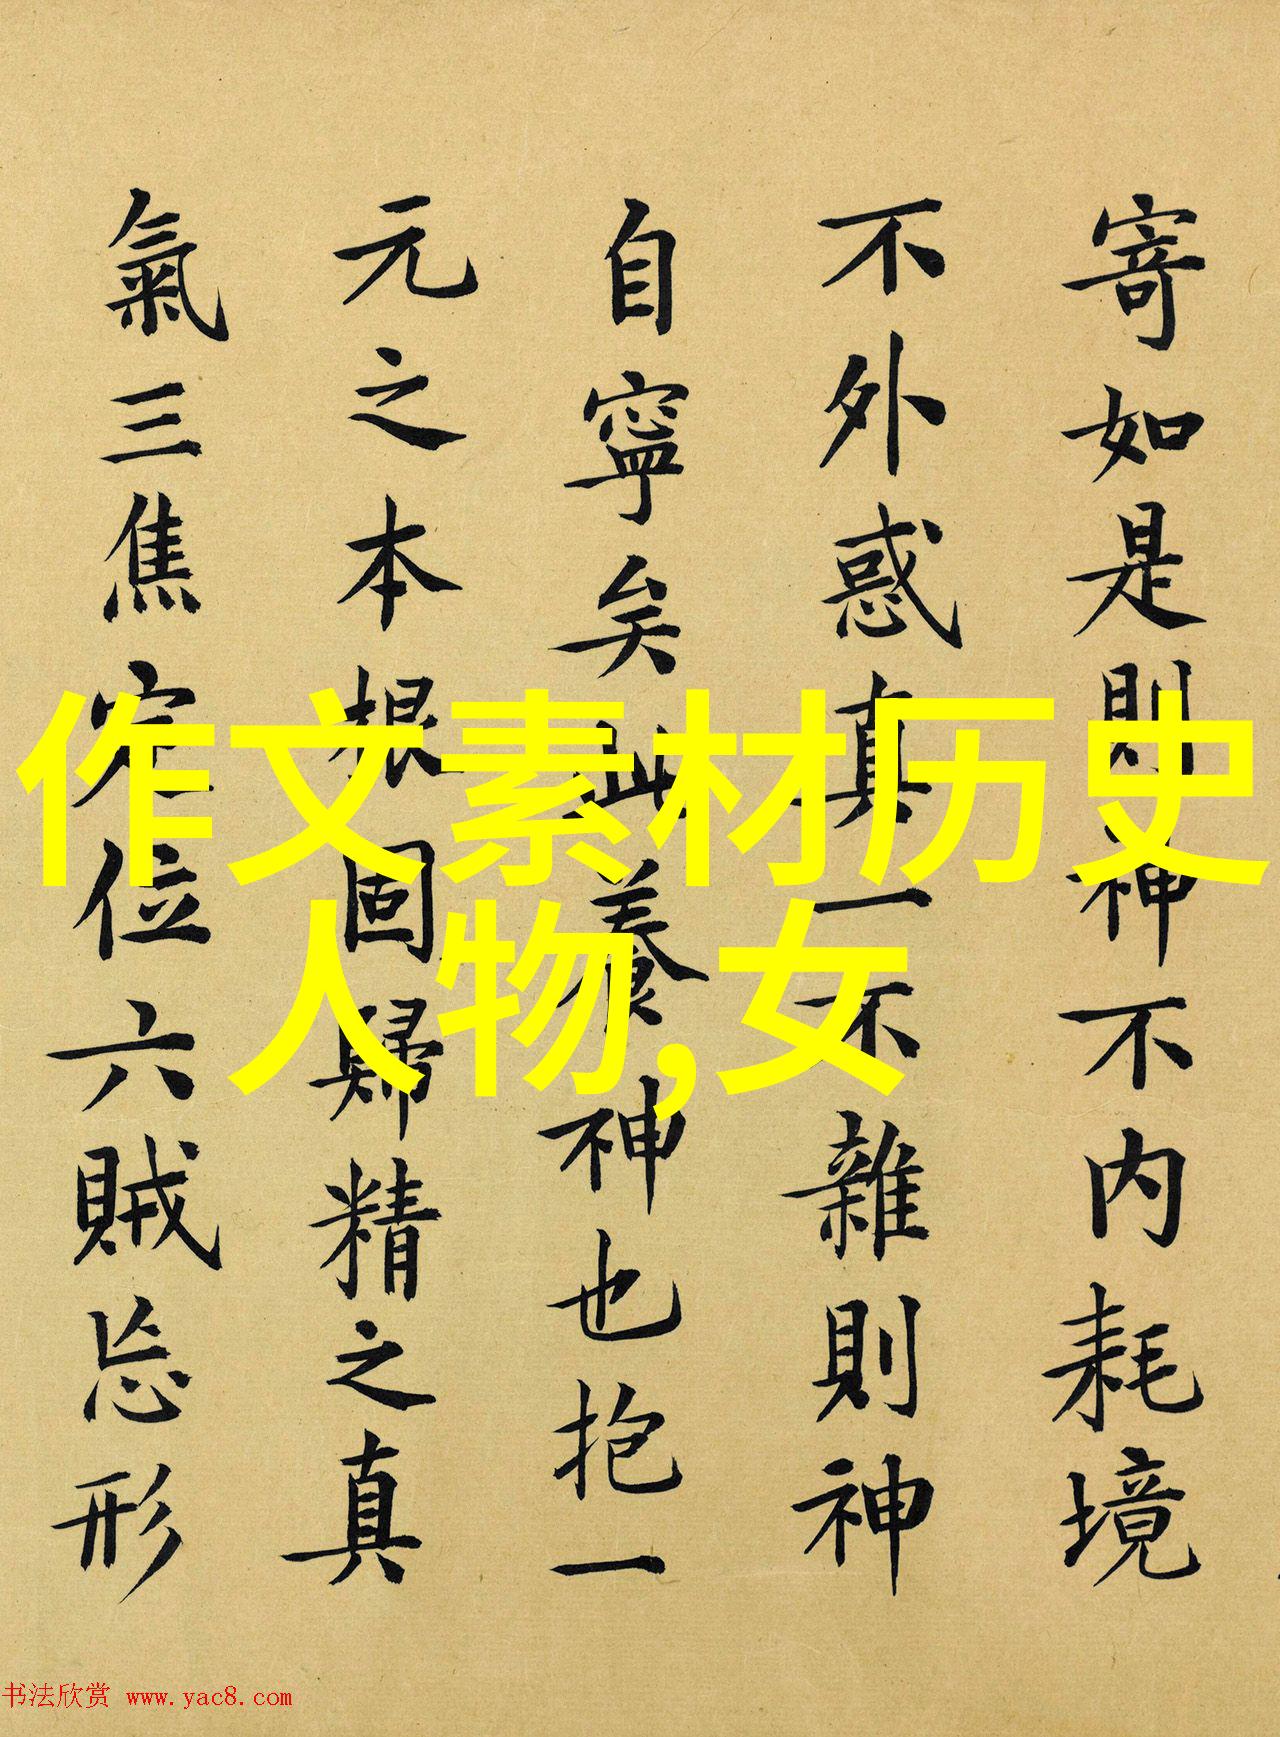 寄如是則神不内耗境
不外惑真一不雜則神
自寧矣此養神也抱一
元之本根固歸精之真
氣三焦定位六賊忘形
作文素材历史
人物,女
书法欣赏 www.yac8.com